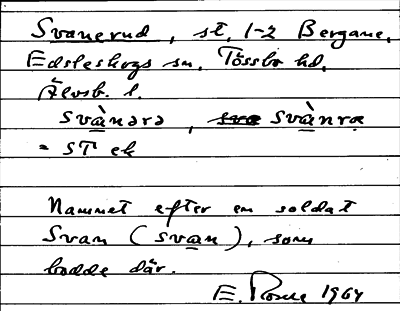 Svanerud, st. 1-2 Bergane,
Edsleskogs sn, Tössbo hd,
Älvsb. l.
svànərə, svànrə
= ST ek
Namnet efter en soldat
Svan (svan), som
bodde där.
E. 1964